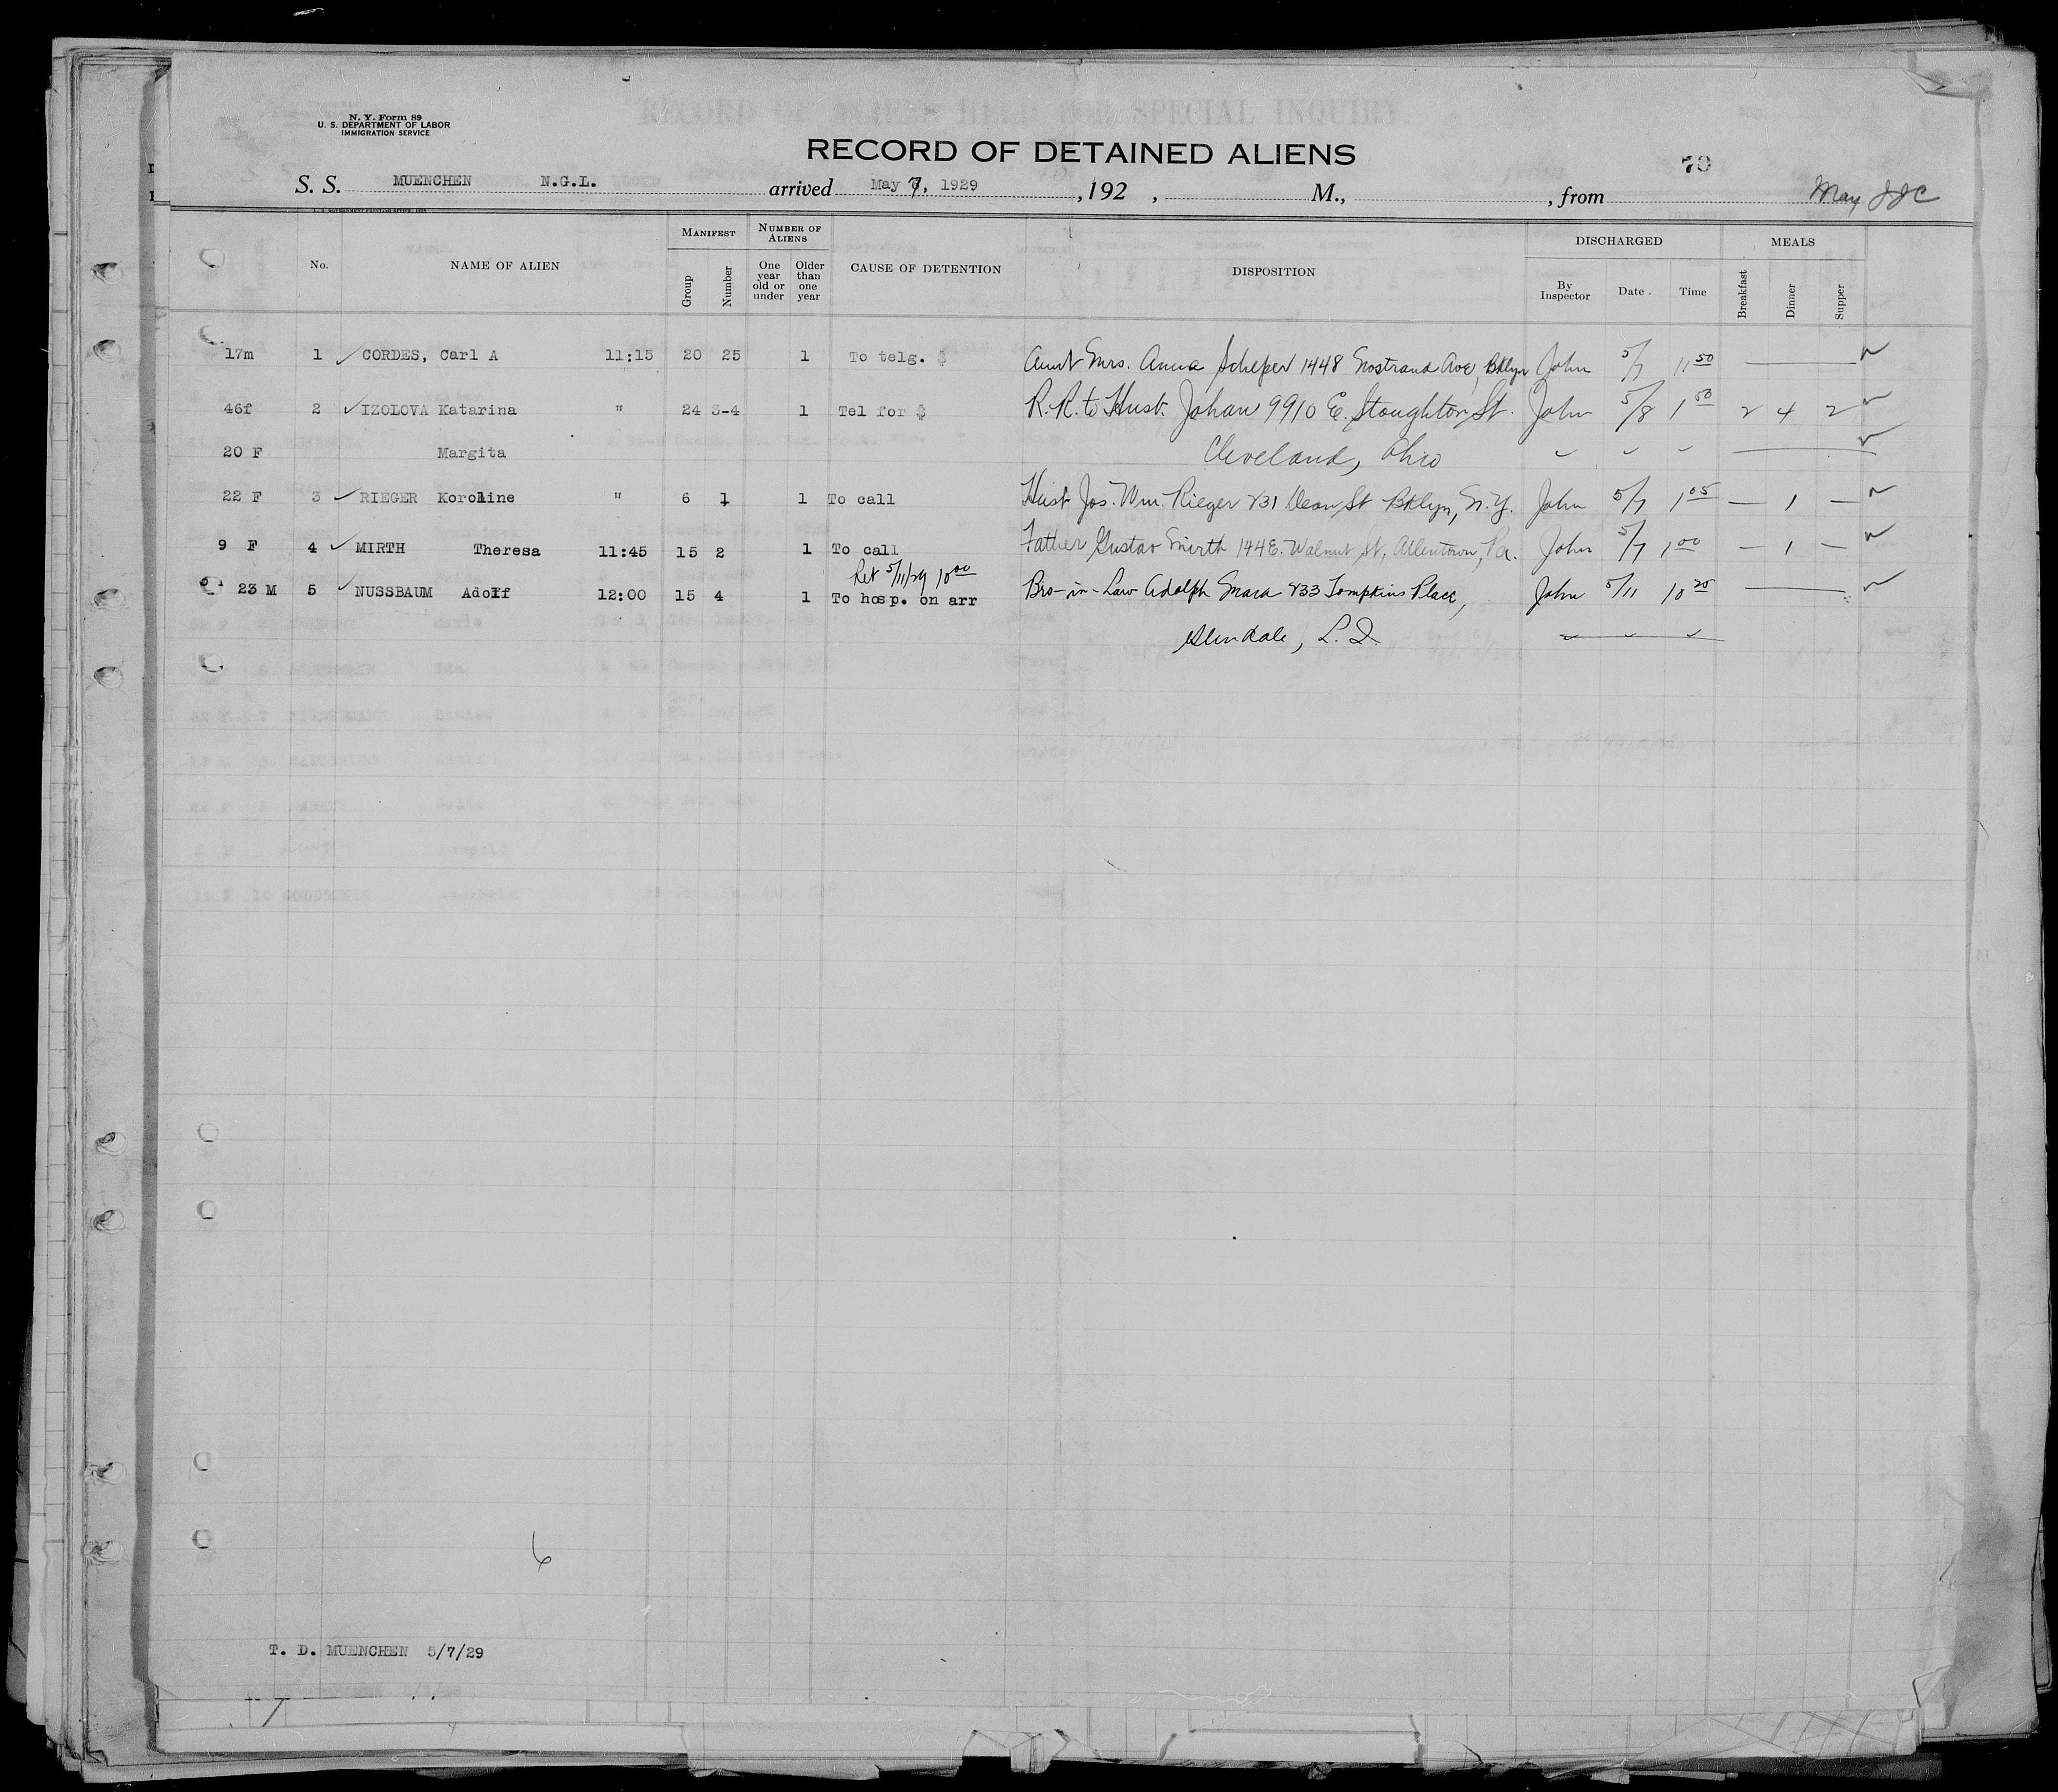 N. Y. Form 89
U. S. DEPARTMENT OF LABOR
IMMIGRATION SERVICE
RECORD OF DETAINED ALIENS
70
S. S. MUENCHEN N.G.L. arrived May 7, 1929 , 192 , M., , from May JJC
No. NAME OF ALIEN MANIFEST Group Number NUMBER OF ALIENS One year old or under Older than one year CAUSE OF DETENTION DISPOSITION DISCHARGED By Inspector Date. Time MEALS Breakfast Dinner Supper
17m 1 ✓ CORDES, Carl A 11:15 20 25 1 To telg. $ Aunt Mrs. Anna Scheper 1448 Nostrand Ave, Bklyn John 5/7 11 50 —
46f 2 ✓ IZOLOVA Katarina " 24 3-4 1 Tel for $ R.R. to Husb. Johan 9910 E. Stoughton St. John 5/8 1 50 2 4 2
20 F Margita Cleveland, Ohio
22 F 3 ✓ RIEGER Koroline " 6 1 1 To call Husb Jos. Wm. Rieger 831 Dean St Bklyn, N.Y. John 5/7 1 05 — 1 —
9 F 4 ✓ MIRTH Theresa 11:45 15 2 1 To call Father Gustav Mirth 144 E. Walnut St, Allentown, Pa. John 5/7 1 00 — 1 —
Ret 5/11/29 10 00
23 M 5 ✓ NUSSBAUM Adolf 12:00 15 4 1 To hosp. on arr Bro-in-Law Adolph 833 Tompkins Place, John 5/11 10 25 —
Glendale, L. I.
6
T. D. MUENCHEN 5/7/29